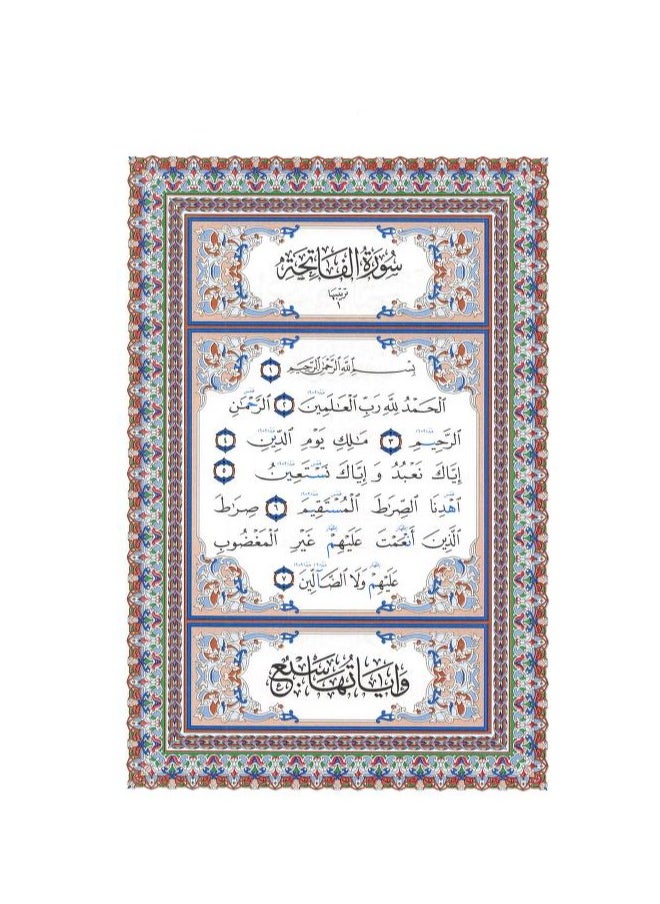 سُورَةُ الفَاتِحَةِ
ترتيبها
١
بِسْمِ ٱللَّهِ ٱلرَّحْمَٰنِ ٱلرَّحِيمِ ١
ٱلْحَمْدُ لِلَّهِ رَبِّ ٱلْعَٰلَمِينَ ٢ ٱلرَّحْمَٰنِ
ٱلرَّحِيمِ ٣ مَٰلِكِ يَوْمِ ٱلدِّينِ ٤
إِيَّاكَ نَعْبُدُ وَإِيَّاكَ نَسْتَعِينُ ٥
ٱهْدِنَا ٱلصِّرَٰطَ ٱلْمُسْتَقِيمَ ٦ صِرَٰطَ
ٱلَّذِينَ أَنْعَمْتَ عَلَيْهِمْ غَيْرِ ٱلْمَغْضُوبِ
عَلَيْهِمْ وَلَا ٱلضَّآلِّينَ ٧
وَآيَاتُهَا سَبْعٌ